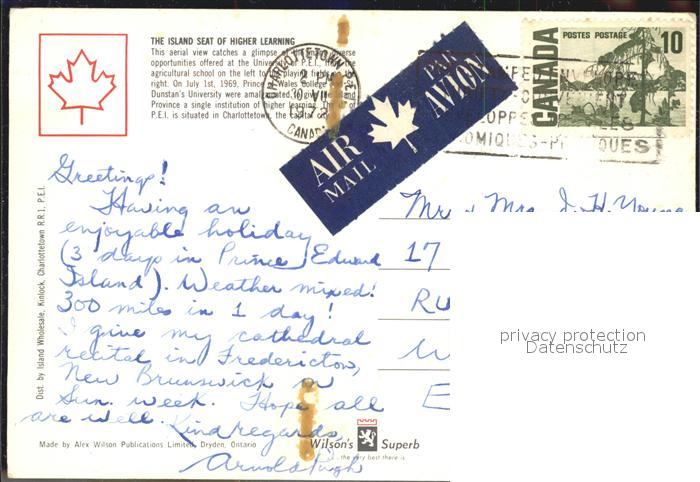 THE ISLAND SEAT OF HIGHER LEARNING
This aerial view catches a glimpse of the many diverse
opportunities offered at the University of P.E.I., from the
agricultural school on the left to playing fields on the
right. On July 1st, 1969, Prince of Wales College and
Dunstan's University were amalgamated, to give the Island
Province a single institution of higher learning. The
P.E.I. is situated in Charlottetown, the capital city.
CHARLOTTETOWN P.E.I.
PM
10 VII
CANADA
AIR MAIL
PAR AVION
CANADA
POSTES POSTAGE
10
Greetings!
Having an
enjoyable holiday
(3 days in Prince Edward
Island). Weather mixed!
300 miles in 1 day!
I give my cathedral
recital in Fredericton,
New Brunswick on
Sun. week. Hope all
are well. Kind regards,
Arnold Pugh
Mr & Mrs J. H. Young
17
RU
W
E
privacy protection
Datenschutz
Dist. by Island Wholesale, Kinlock, Charlottetown R.R.1, P.E.I.
Made by Alex Wilson Publications Limited, Dryden, Ontario
Wilson's Superb
... the very best there is